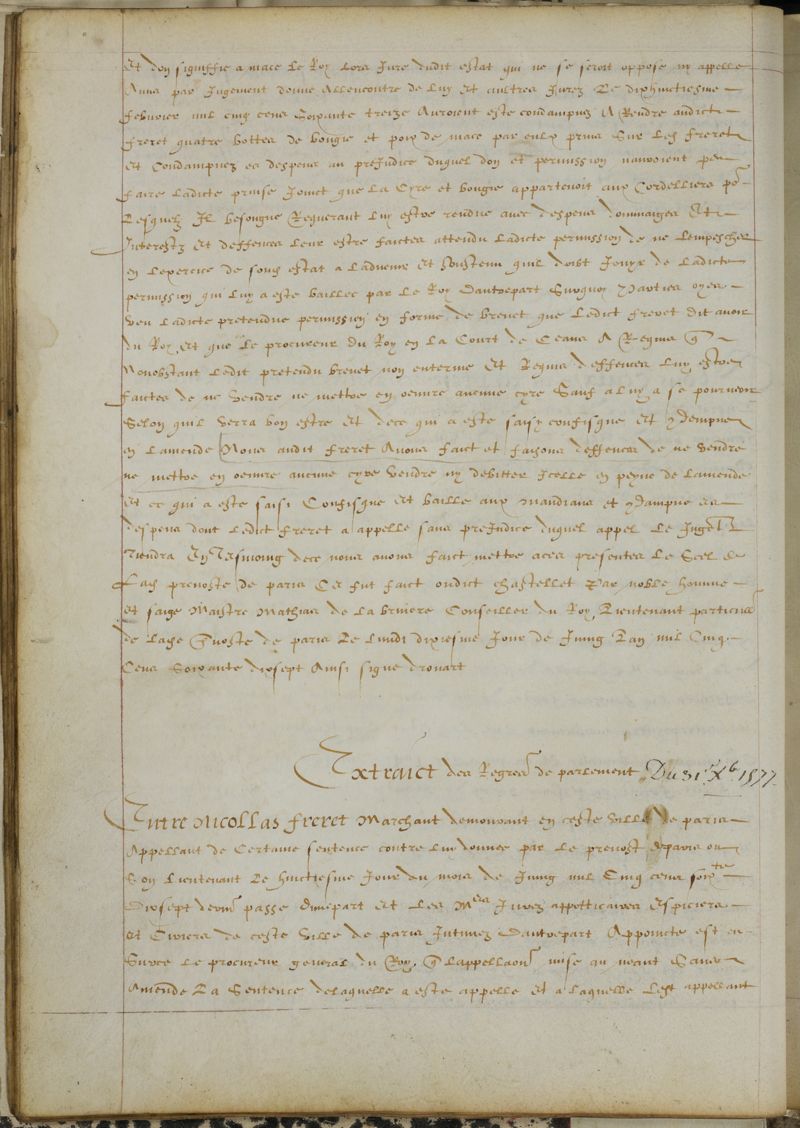 Et don signiffie a mace Le Roy Lors Jure dudit estat qui ne se seroit oppose ny appelle
Ains par Jugement donne Allencontre de Luy et aultres Jurez Le dixhuictiesme
febvrier mil cinq cens Soixante treize Auroient este condampnez A Rendre audict
freret quatre bottes de bougie et poix de mace par eulx prins Sur Led freret
et Condampnez es despens au prejudice duquel don et permission nauroient peu
faire Ladicte prinse Joinct que La Cyre et bougie appartenoit aux Cordelliers po~
Lesquelz Il besongne Requerant Luy estre rendue avec despens dommaiges Et
Interestz et deffences Leur estre faictes attendu Ladicte permission de ne Lempescher
en Lexercice de sond estat a Ladvenir et soustenu quil doibt Jouyr de Ladicte
permission qui Luy a este baillee par Le Roy Dautrepart Surquoy Parties oyes
veu Ladicte pretendue permission en forme de brevet que Ledict freret dit avoir
du Roy, et que Le procureur du Roy en La Court de Ceans A Requis q~
Nonobstant Ledit pretendu brevet non enterine Et Requis deffences Luy estre
faictes de ne vendre ne mettre en oeuvre aucune cyre Sauf a Luy a se pourveoir
Selon quil verra bon estre et dece qui a este saisy confisque et 9dempne
en Lamende Nous audit freret Avons faict et faisons deffences de ne vendre
ne mettre en oeuvre aucune cyre vendre ny debitter Icelle en peyne de Lamende
et ce qui a este saisi Confisque et baille aux mandians et 9dampne es
despens dont Ledict freret a appelle sans prejudice duquel appel Le Jugem~t
Tiendra En Tesmoing dece nous avons faict mettre aces presentes Le Scel de
Lad prevoste de paris Ce fut faict oudict chastellet Par noble homme
et saige Maistre Mathias de La bruiere Conseiller du Roy, Lieutenant particulier
de Lad p~voste de paris Le Lundi dixiesme Jour de Juing Lan mil Cinq
Cens Soixante dixsept Ainsi signe drouart
Extraict des Regres~ de parlement Du 31e xb. 1577.
Entre Nicollas freret Marchant demourant en ceste ville de paris
Appellant de Certaine sentence contre Luy donnee par Le prevost deparis ou
Son Lieutenant Le huictiesme Jour du mois de Juing mil Cinq cens soixte
Dixsept dernr~ passe dunepart et Les Mes Jurez appotticaires Espiciers
et Ciriers de ceste Ville de paris Intimez Dautrepart Appoincte est en
Surce Le procureur general du Roy, q~ Lappellaon~ mise au neant Sans
Amende La Sentence delaquelle a este appelle et a laquelle Led appellant